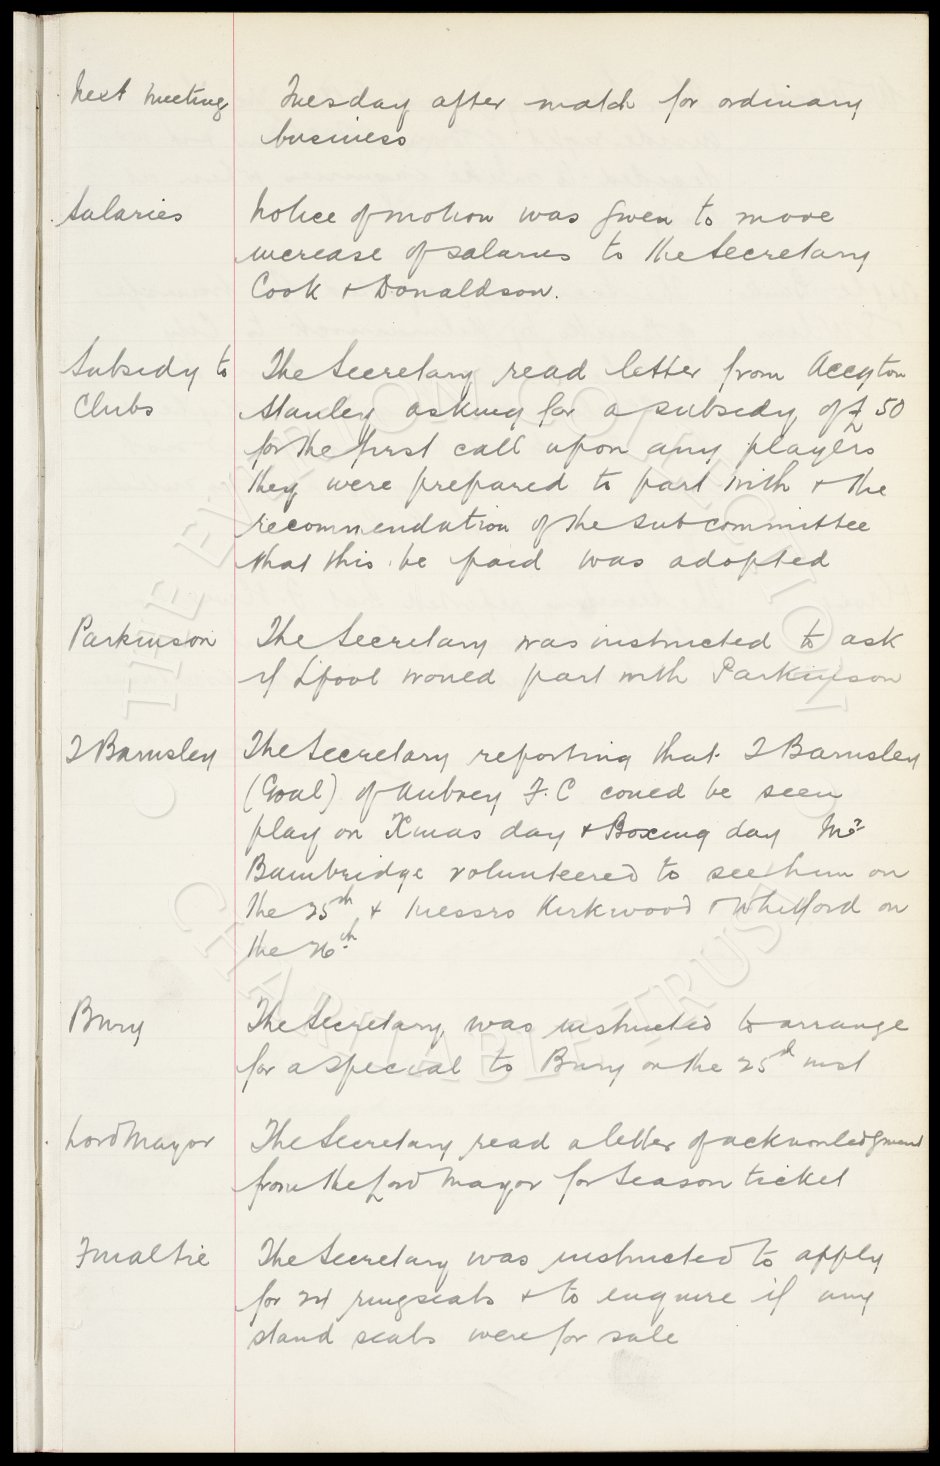 Next Meeting Tuesday after match for ordinary
business
Salaries Notice of motion was given to move
increase of salaries to the Secretary
Cook & Donaldson.
Subsidy to The Secretary read letter from Accgton
Clubs Stanley asking for a subsidy of £50
for the first call upon any players
they were prepared to part with & the
recommendation of the sub committee
that this be paid was adopted
Parkinson The Secretary was instructed to ask
if L'pool would part with Parkinson
J Barnsley The Secretary reporting that J Barnsley
(Goal) of Aubrey F.C could be seen
play on Xmas day & Boxing day Mr
Bainbridge volunteered to see him on
the 25th & Messrs Kirkwood & Whitford on
the 26th
Bury The Secretary was instructed to arrange
for a special to Bury on the 25d inst
Lord Mayor The Secretary read a letter of acknowledgment
from the Lord Mayor for Season ticket
Final Tie The Secretary was instructed to apply
for 24 ring seats & to enquire if any
stand seats were for sale
© THE EVERTON COLLECTION
CHARITABLE TRUST